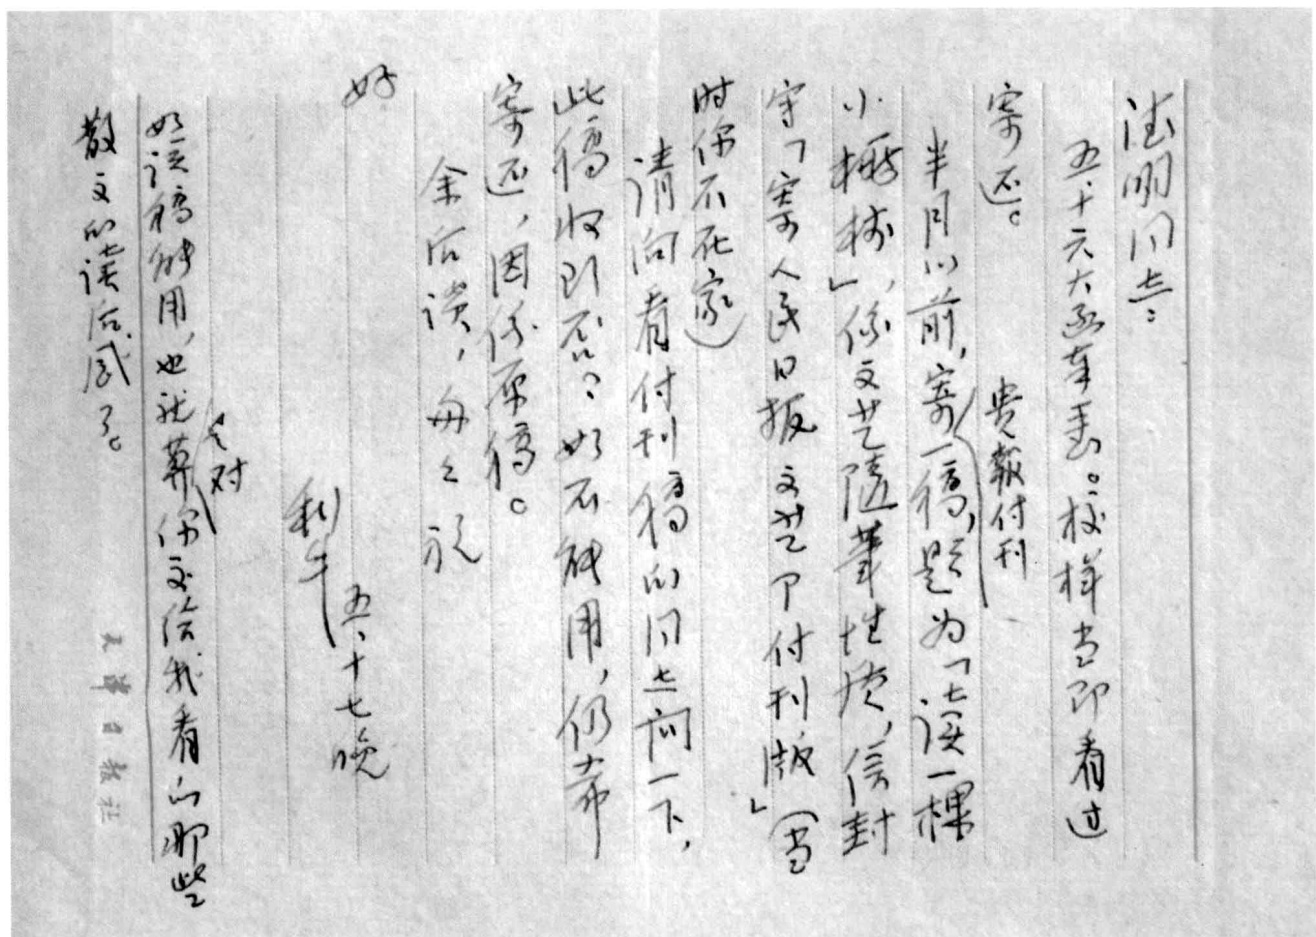 德明同志：
五十六大函奉悉。校样当即看过
寄还。
贵報付刊
半月以前，寄一稿，题为「读一棵
小橛樹」，係文艺隨筆性质，信封
字「寄人民日报文艺部付刊版」（当
时你不在家）
请向看付刊稿的同志问一下，
此稿收到否？如不能用，仍希
寄还，因係原稿。
余后谈，匆匆 祝
好
利牛
五、十七晚
如该稿能用，也就算
是对
你交给我看的那些
散文的读后感了。
天津日报社